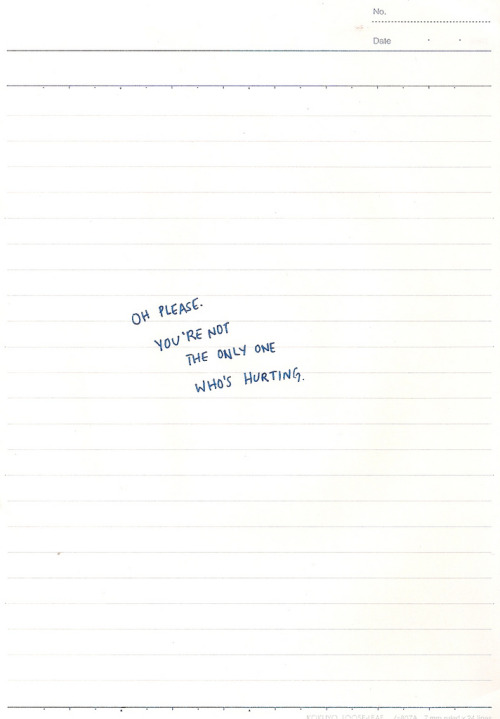 No.
Date
OH PLEASE.
YOU'RE NOT
THE ONLY ONE
WHO'S HURTING.